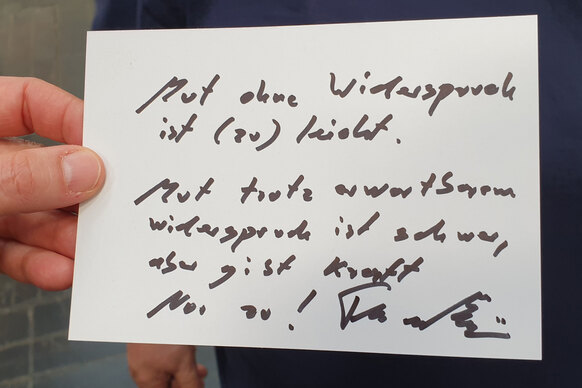 Mut ohne Widerspruch
ist (zu) leicht.
Mut trotz erwartbarem
widerspruch ist schwer,
aber gibt Kraft
Nur zu!